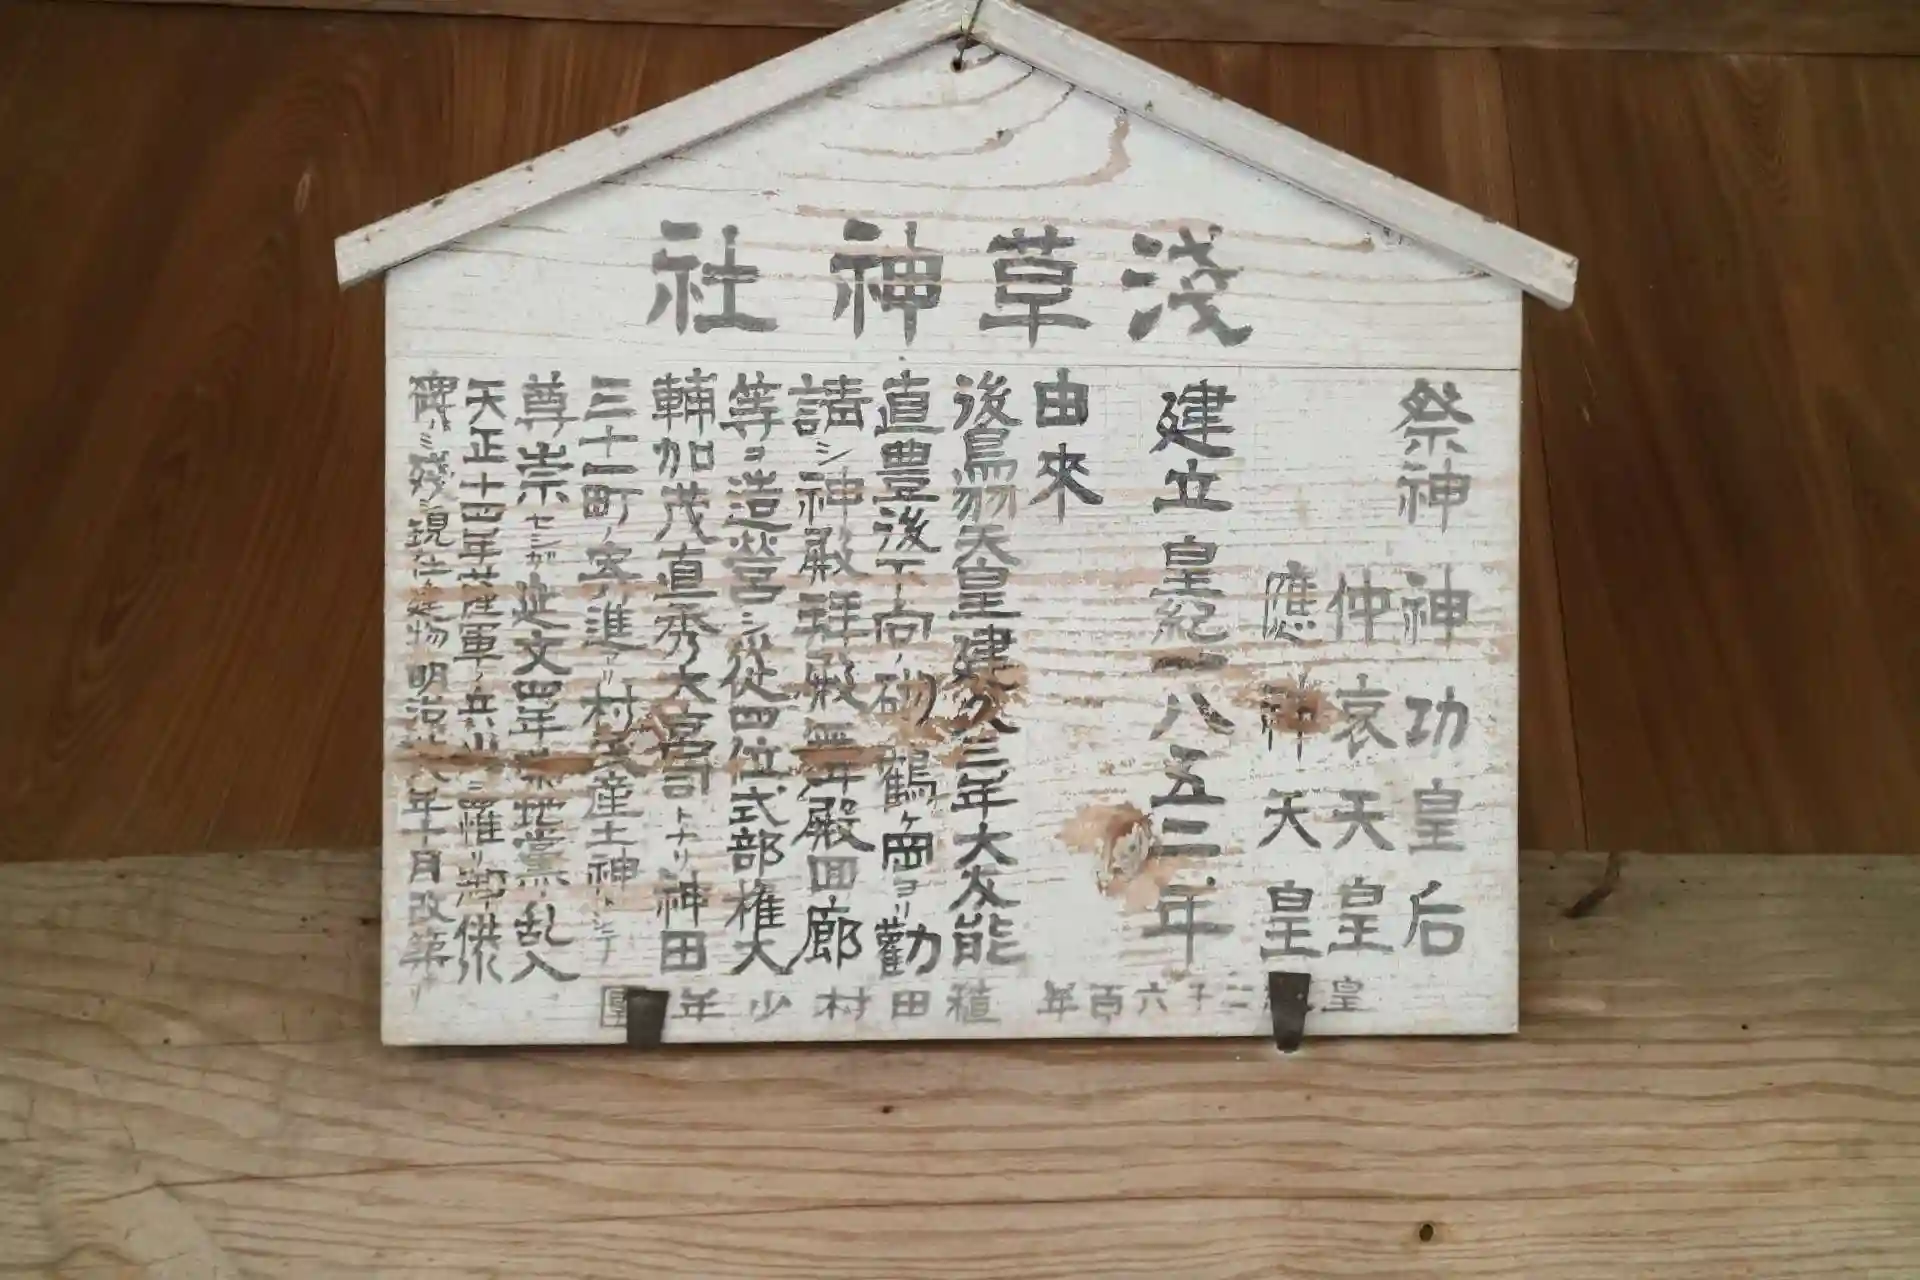 淺草神社
祭神 神功皇后
仲哀天皇
應神天皇
建立 皇紀一八五二年
由來
後鳥羽天皇建久三年大友能
直豊後下向ノ砌鶴ヶ岡ヨリ勸
請シ神殿拜殿無年殿回廊
等ヲ造営シ従四位式部権大
輔加茂直秀大宮司トナリ神田
三十一町ノ寄進アリ村民産土神トシテ
尊崇セシガ延文四年菊地黨乱入
天正十四年薩軍ノ兵火ニ罹リ御供水
碑ノミ残シ現在建物明治 八年十月改築ナリ
皇紀二千六百年 稙田村少年團